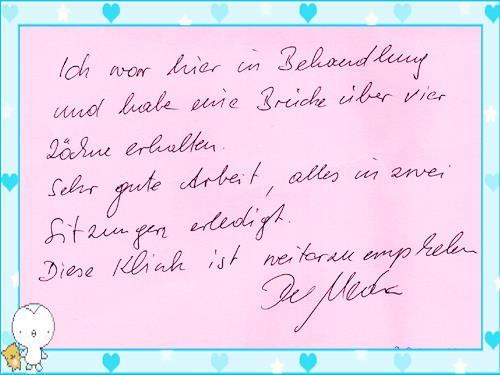 Ich war hier in Behandlung
und habe eine Brücke über vier
Zähne erhalten.
Sehr gute Arbeit, alles in zwei
Sitzungen erledigt.
Diese Klinik ist weiterzuempfehlen